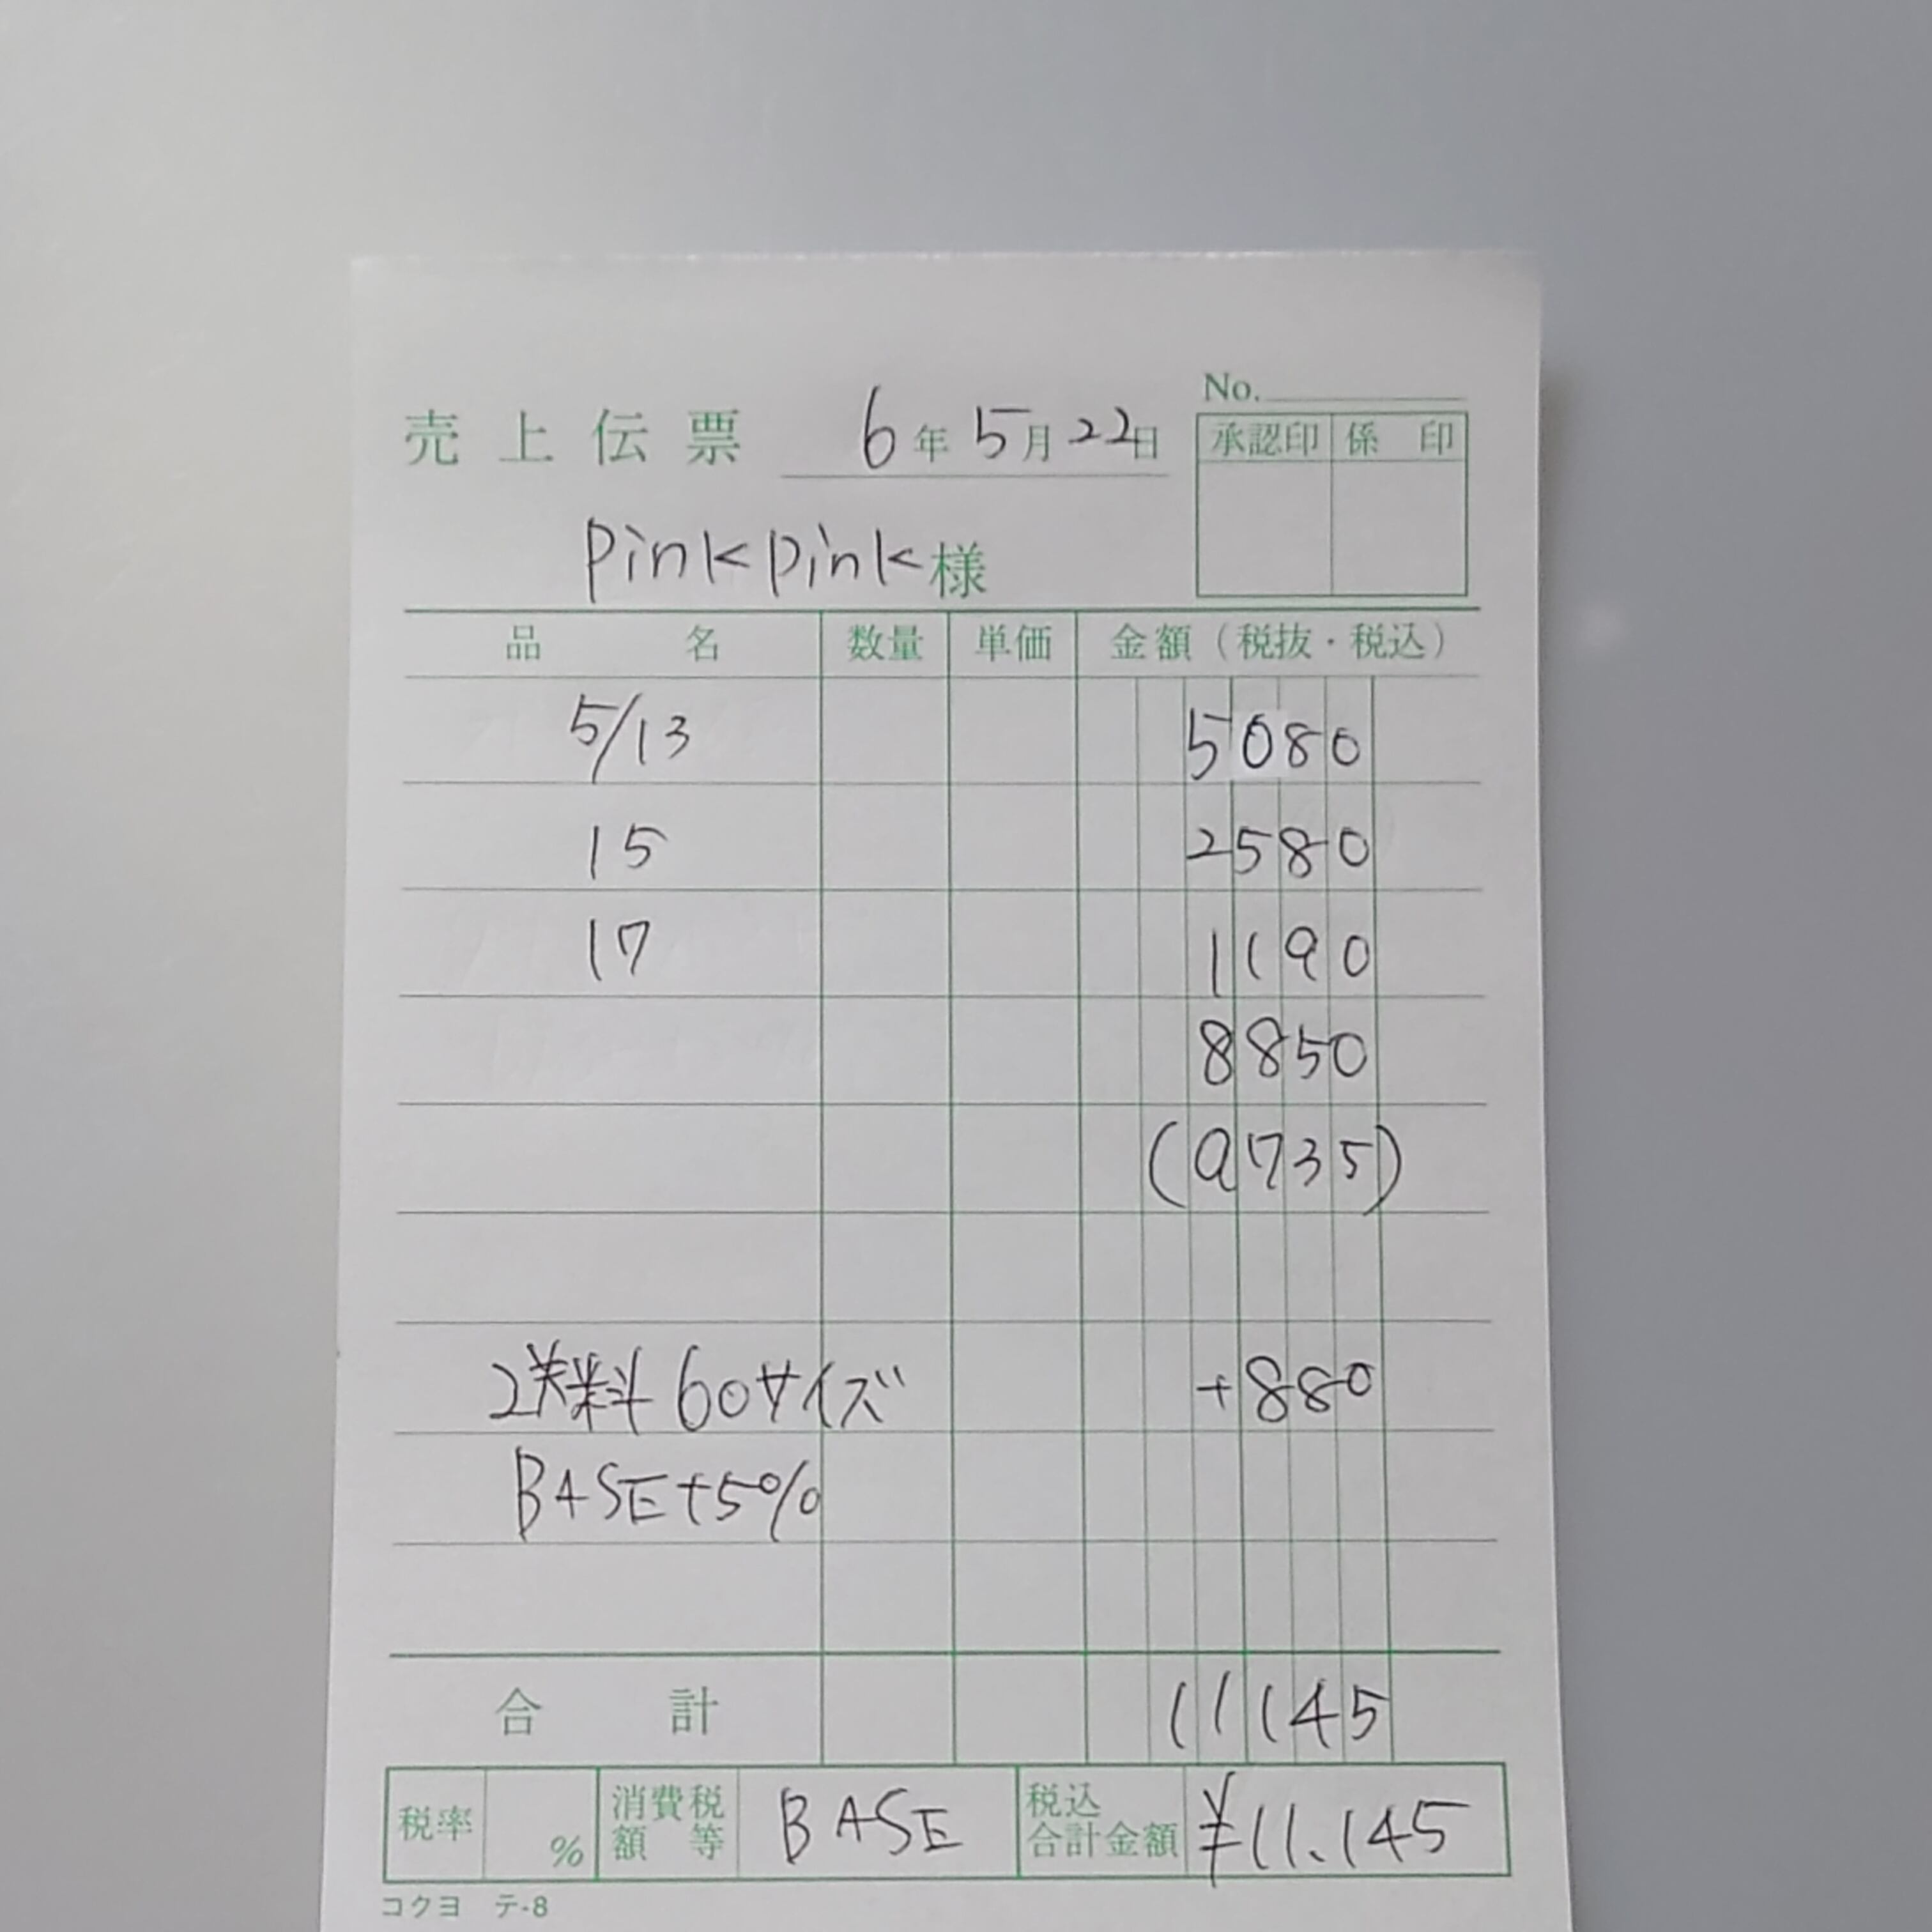 No.
売上伝票 6年5月22日
承認印 係印
pinkpink様
品名 数量 単価 金額（税抜・税込）
5/13 5080
15 2580
17 1190
8850
(9735)
送料60サイズ +880
BASE+5%
合計 11145
税率 % 消費税額等 BASE 税込合計金額 ¥11.145
コクヨ テ-8